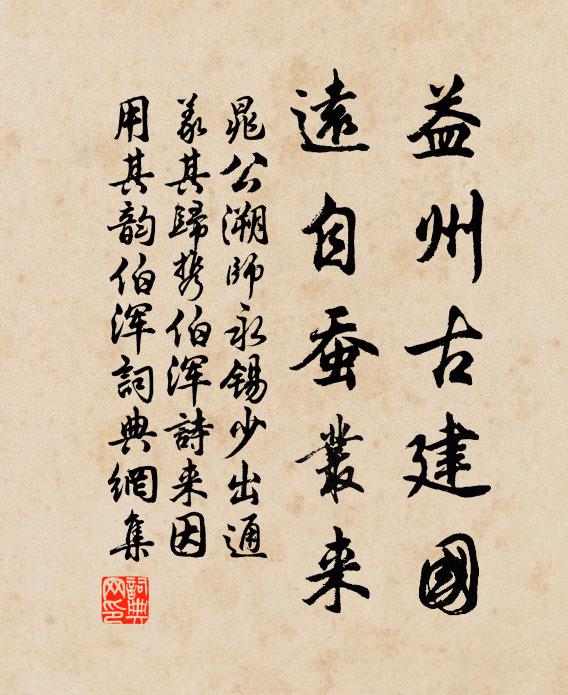 益州古建國
遠自蚕叢来
晁公溯師永錫少出通
義其歸携伯渾詩来因
用其韵伯渾詞典網集
詞典
网印